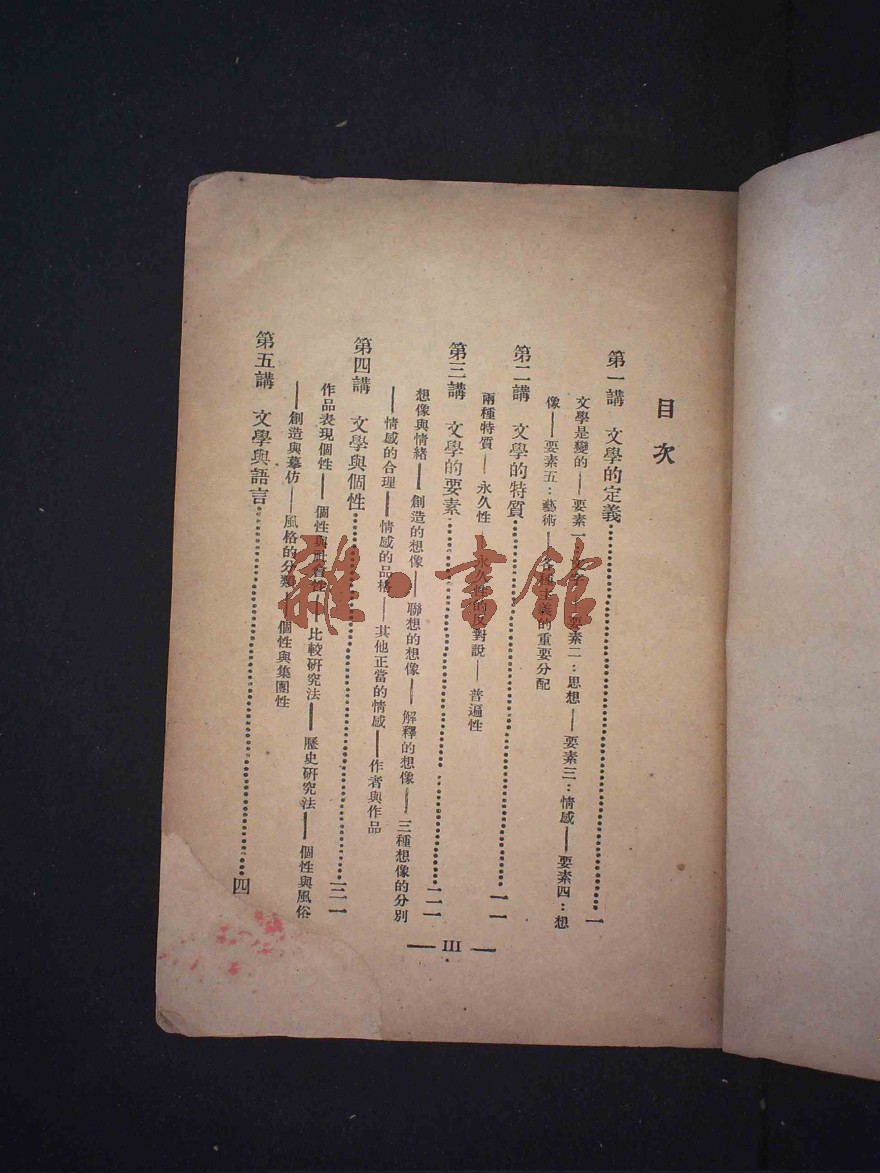 目次
第一講 文學的定義…………一
文學是變的——要素一:文字——要素二:思想——要素三:情感——要素四:想
像——要素五:藝術——各種主義的重要分配
第二講 文學的特質…………一一
兩種特質——永久性——永久性的反對說——普遍性
第三講 文學的要素…………二一
想像與情緒——創造的想像——聯想的想像——解釋的想像——三種想像的分別
——情感的合理——情感的品格——其他正當的情感——作者與作品
第四講 文學與個性…………三一
作品表現個性——個性與社會性——比較研究法——歷史研究法——個性與風俗
——創造與摹仿——風格的分類——個性與集團性
第五講 文學與語言…………四
— III —
雜·書館